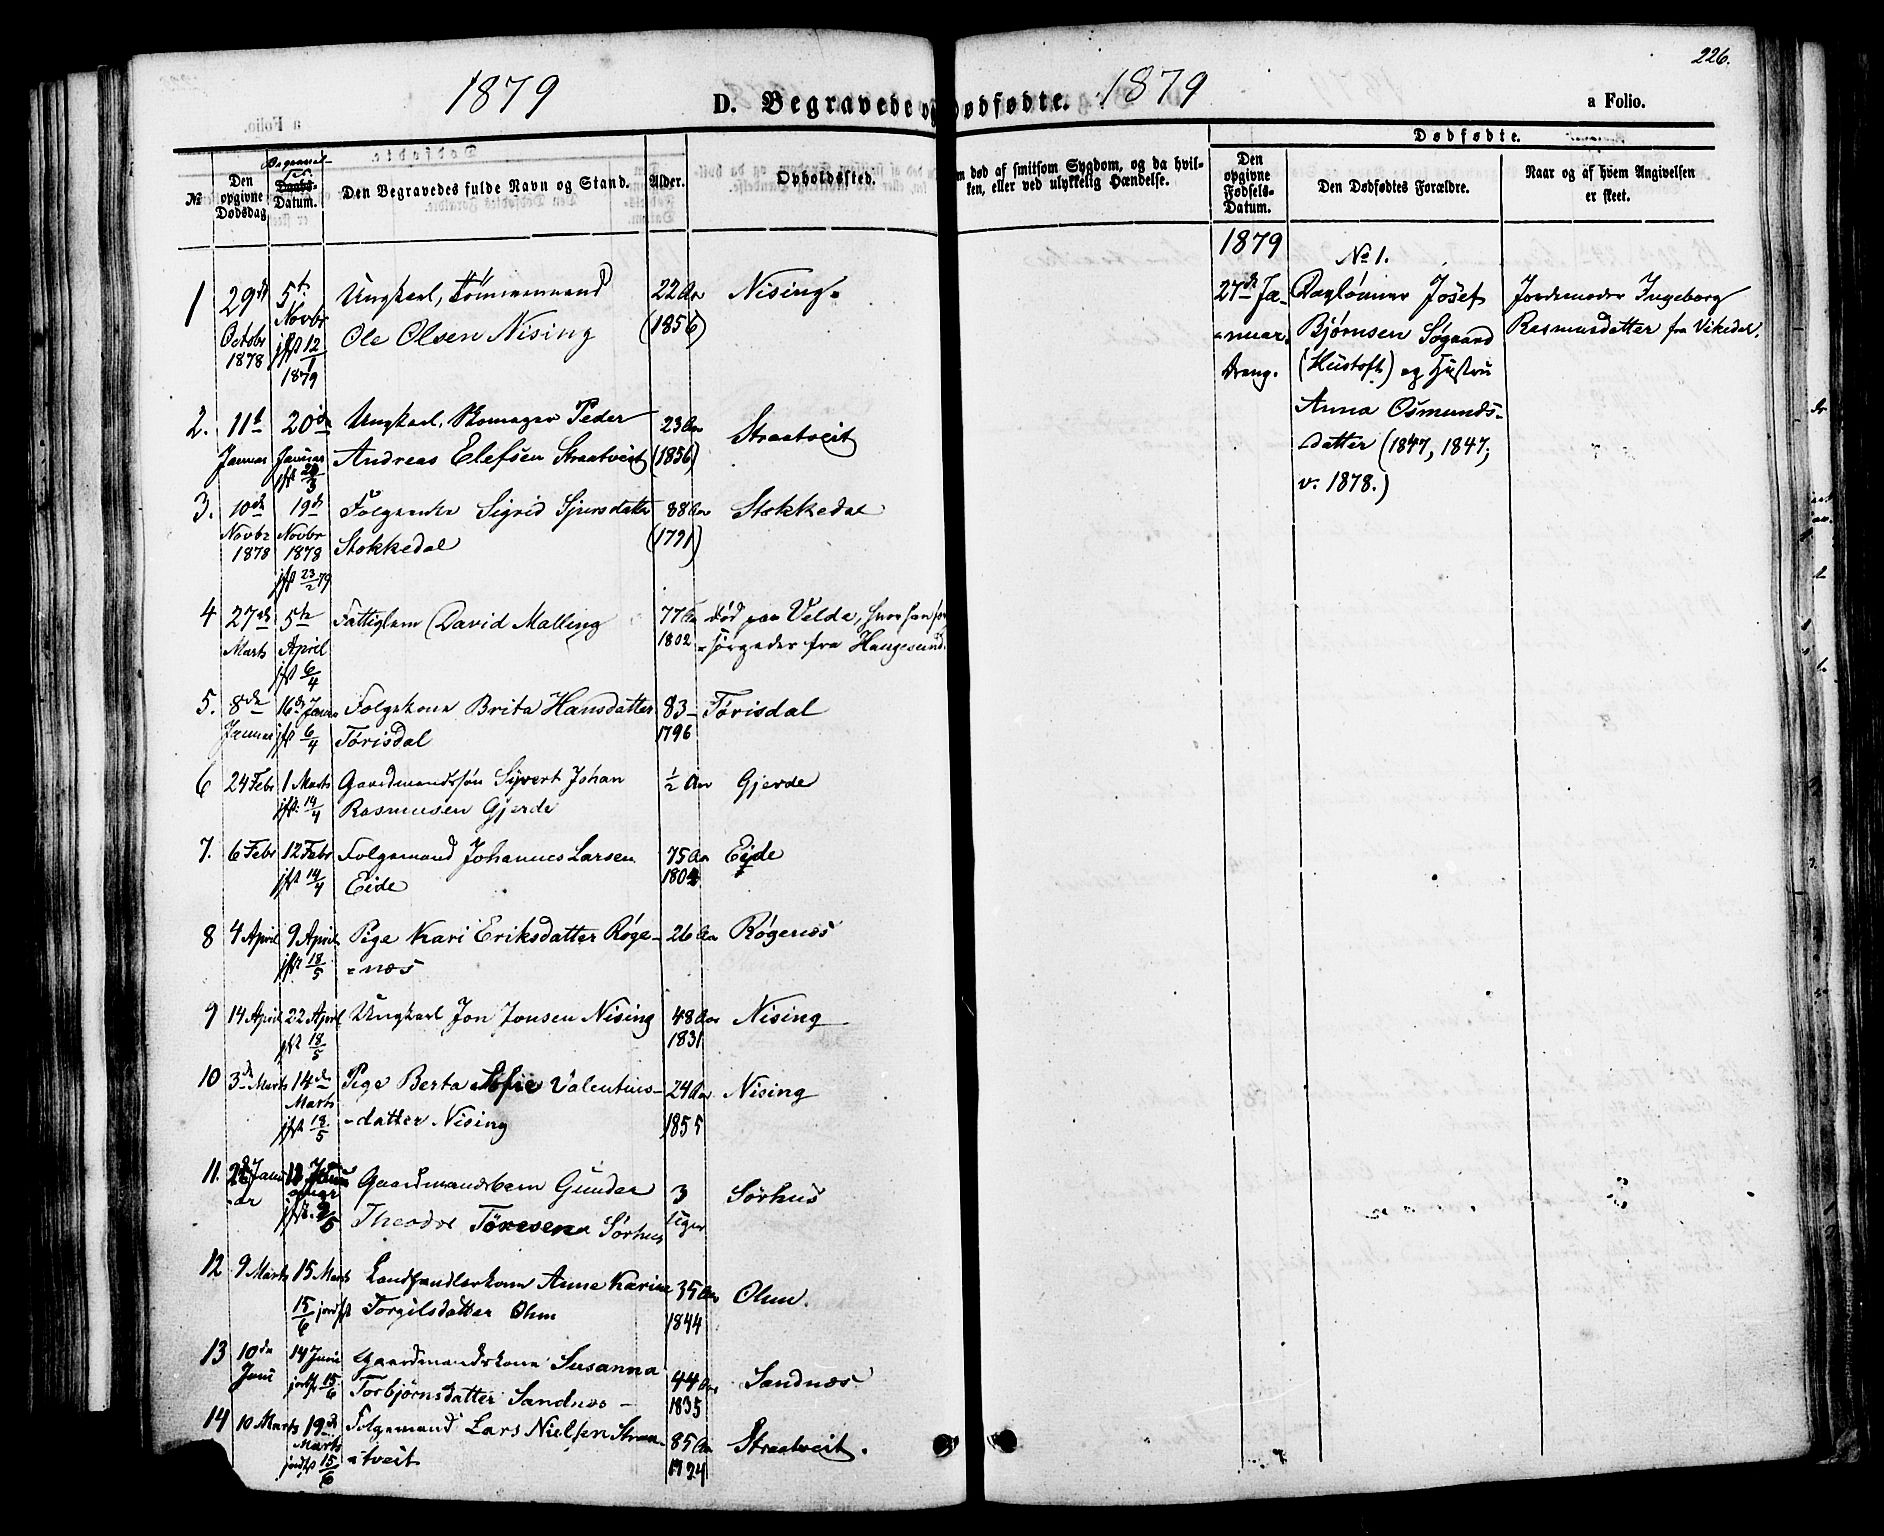 226.
1879
D. Begravede og Dødfødte.
1879
a Folio.
Dødfødte.
№
Den opgivne Dødsdag
Begravel-
Daabs-
Datum.
Den Begravedes fulde Navn og Stand.
Alder.
Opholdssted.
død af smitsom Sygdom, og da hvil-
ken, eller ved ulykkelig Hændelse.
Den opgivne Fødsels-Datum.
Den Dødfødtes Forældre.
Naar og af hvem Angivelsen er skeet.
1 29de Octobr 1878 5te Novbr jfst 12/1 1879 Ungkarl, Tømmermand
Ole Olsen Nising 22 Aar (1856) Nising.
2. 11te Januar 20de Januar jfst 23/3 Ungkarl, Skomager Peder
Andreas Elefsen Straatveit 23 Aar (1856) Straatveit
3. 10de Novbr 1878 19de Novbr 1878 jfst 23/2 79 Folgeenke Sigrid Sjursdatter
Stokkedal 88 Aar (1791) Stokkedal
4 27de Marts 5te April jfst 6/4 Fattiglem David Malling 77 Aar 1802 død paa Velde, hvor han for-
-sørgedes fra Haugesund.
5. 8de Januar 16de Januar jfst 6/4 Folgekone Brita Hansdatter
Tørisdal 83 1796 Tørisdal
6 24 Febr 1 Marts jfst. 14/4 Gaardmandssøn Syvert Johan
Rasmussen Gjerde 1/2 Aar Gjerde
7. 6 Febr 12 Febr jfst 14/4 Folgemand Johannes Larsen
Eide 75 Aar 1804 Eide
8 4 April 9 April jfst 18/5 Pige Kari Eriksdatter Røge-
-næs 26 Aar Røgenæs
9 14 April 22 April jfst 18/5 Ungkarl Jon Jonsen Nising 48 Aar 1831 Nising
10 3de Marts 14de Marts jfst 18/5 Pige Berta Sofie Valentins-
-datter Nising 24 Aar 1855 Nising
11. Janu-
-ar jfst. Gaardmandsbarn Gunder
Theodor Tøresen Sørhus 3 Uger Sørhus
12 9 Marts 15 Marts 15/6 jordfst Landhandlerkone Anne Karine
Torgilsdatter Ølm 35 Aar 1844 Ølen.
13 10de Juni 14 Juni jordfst 15/6 Gaardmandskone Susanna
Torbjørnsdatter Sandnæs 44 Aar 1835 Sandnæs
14 10 Marts 19de Marts jordfst 15/6 Folgemand Lars Nielsen Straa-
-tveit 85 Aar 1794 Straatveit.
1879
27de Ja-
-nuar.
Dreng.
№ 1.
Daglønner Josef
Bjørnsen Søgaard
(Hustoft) og Hustru
Anna Osmunds-
datter (1847, 1847;
v. 1878.)
Jordemoder Ingeborg
Rasmusdatter fra Vikedal.